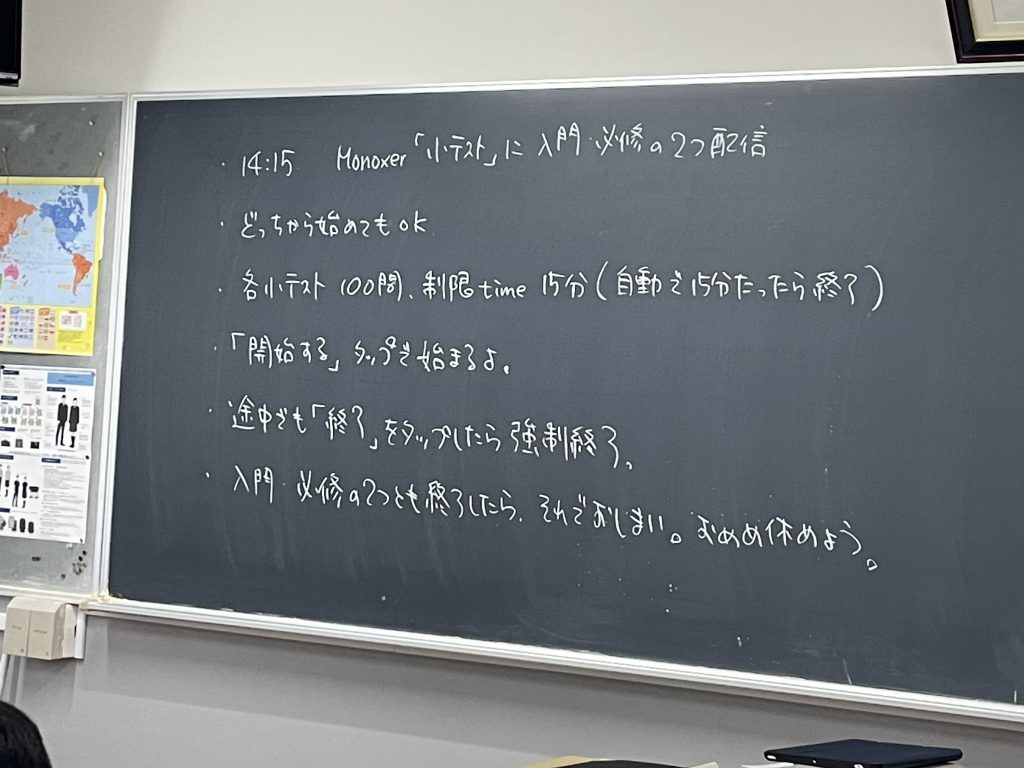 ・14:15 Monoxer「小テスト」に入門・必修の2つ配信
・どっちから始めてもOK
・各小テスト100問、制限time 15分(自動で15分たったら終了)
・「開始する」タップで始まるよ。
・途中でも「終了」をタップしたら強制終了。
・入門・必修の2つとも終了したら、それでおしまい。おめめ休めよう。